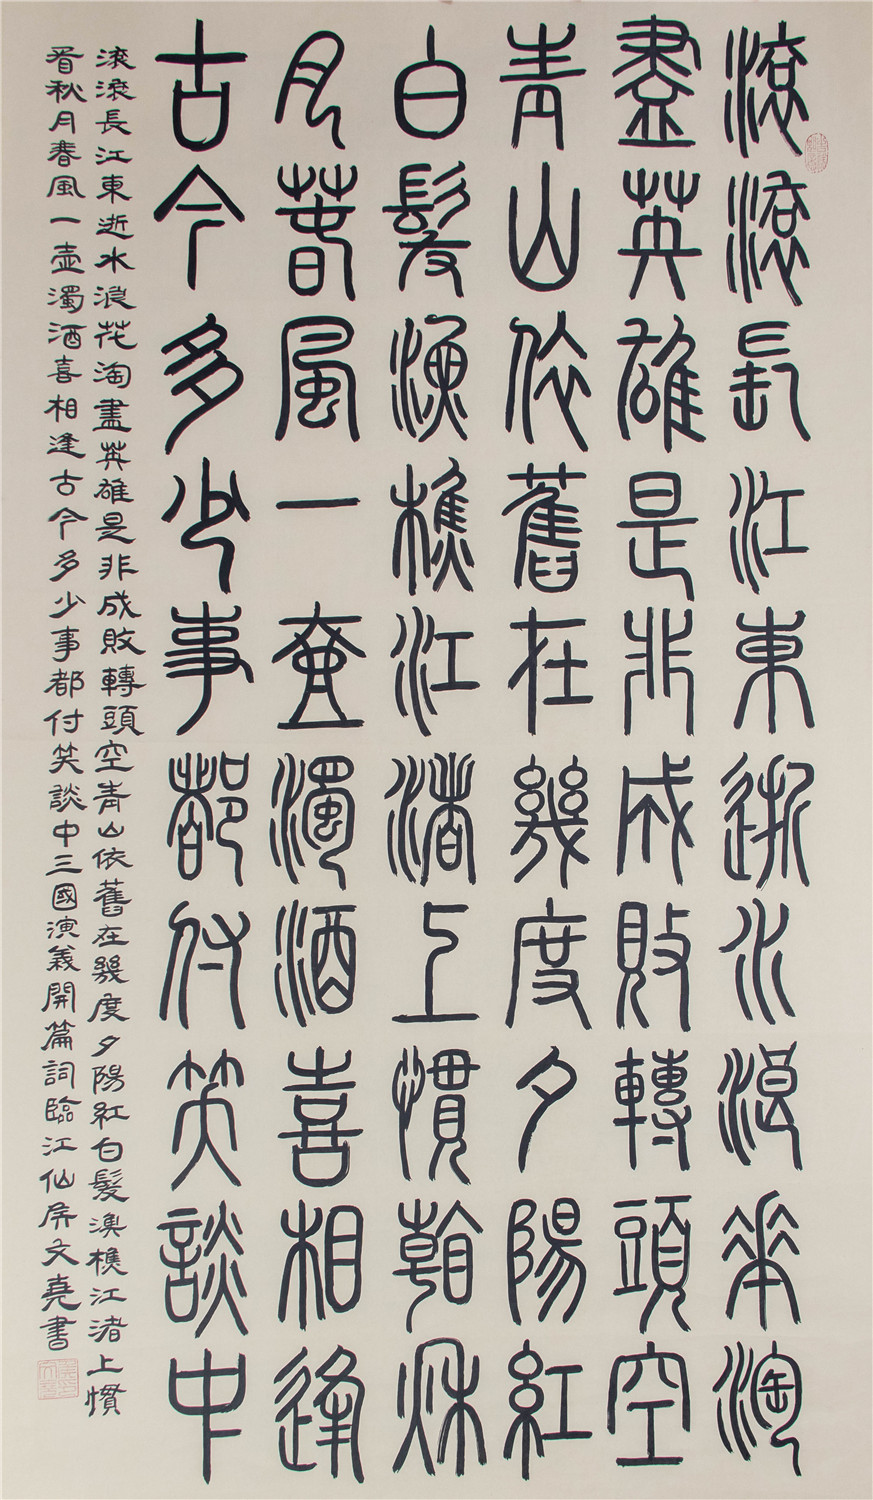 滾滾長江東逝水浪花淘
盡英雄是非成敗轉頭空
青山依舊在幾度夕陽紅
白髮漁樵江渚上慣看秋
月春風一壺濁酒喜相逢
古今多少事都付笑談中
滾滾長江東逝水浪花淘盡英雄是非成敗轉頭空青山依舊在幾度夕陽紅白髮漁樵江渚上慣
看秋月春風一壺濁酒喜相逢古今多少事都付笑談中三國演義開篇詞臨江仙文堯書